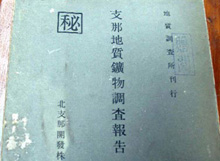 地質調査所刊行
支那地質鑛物調査報告
秘
北支那開發株